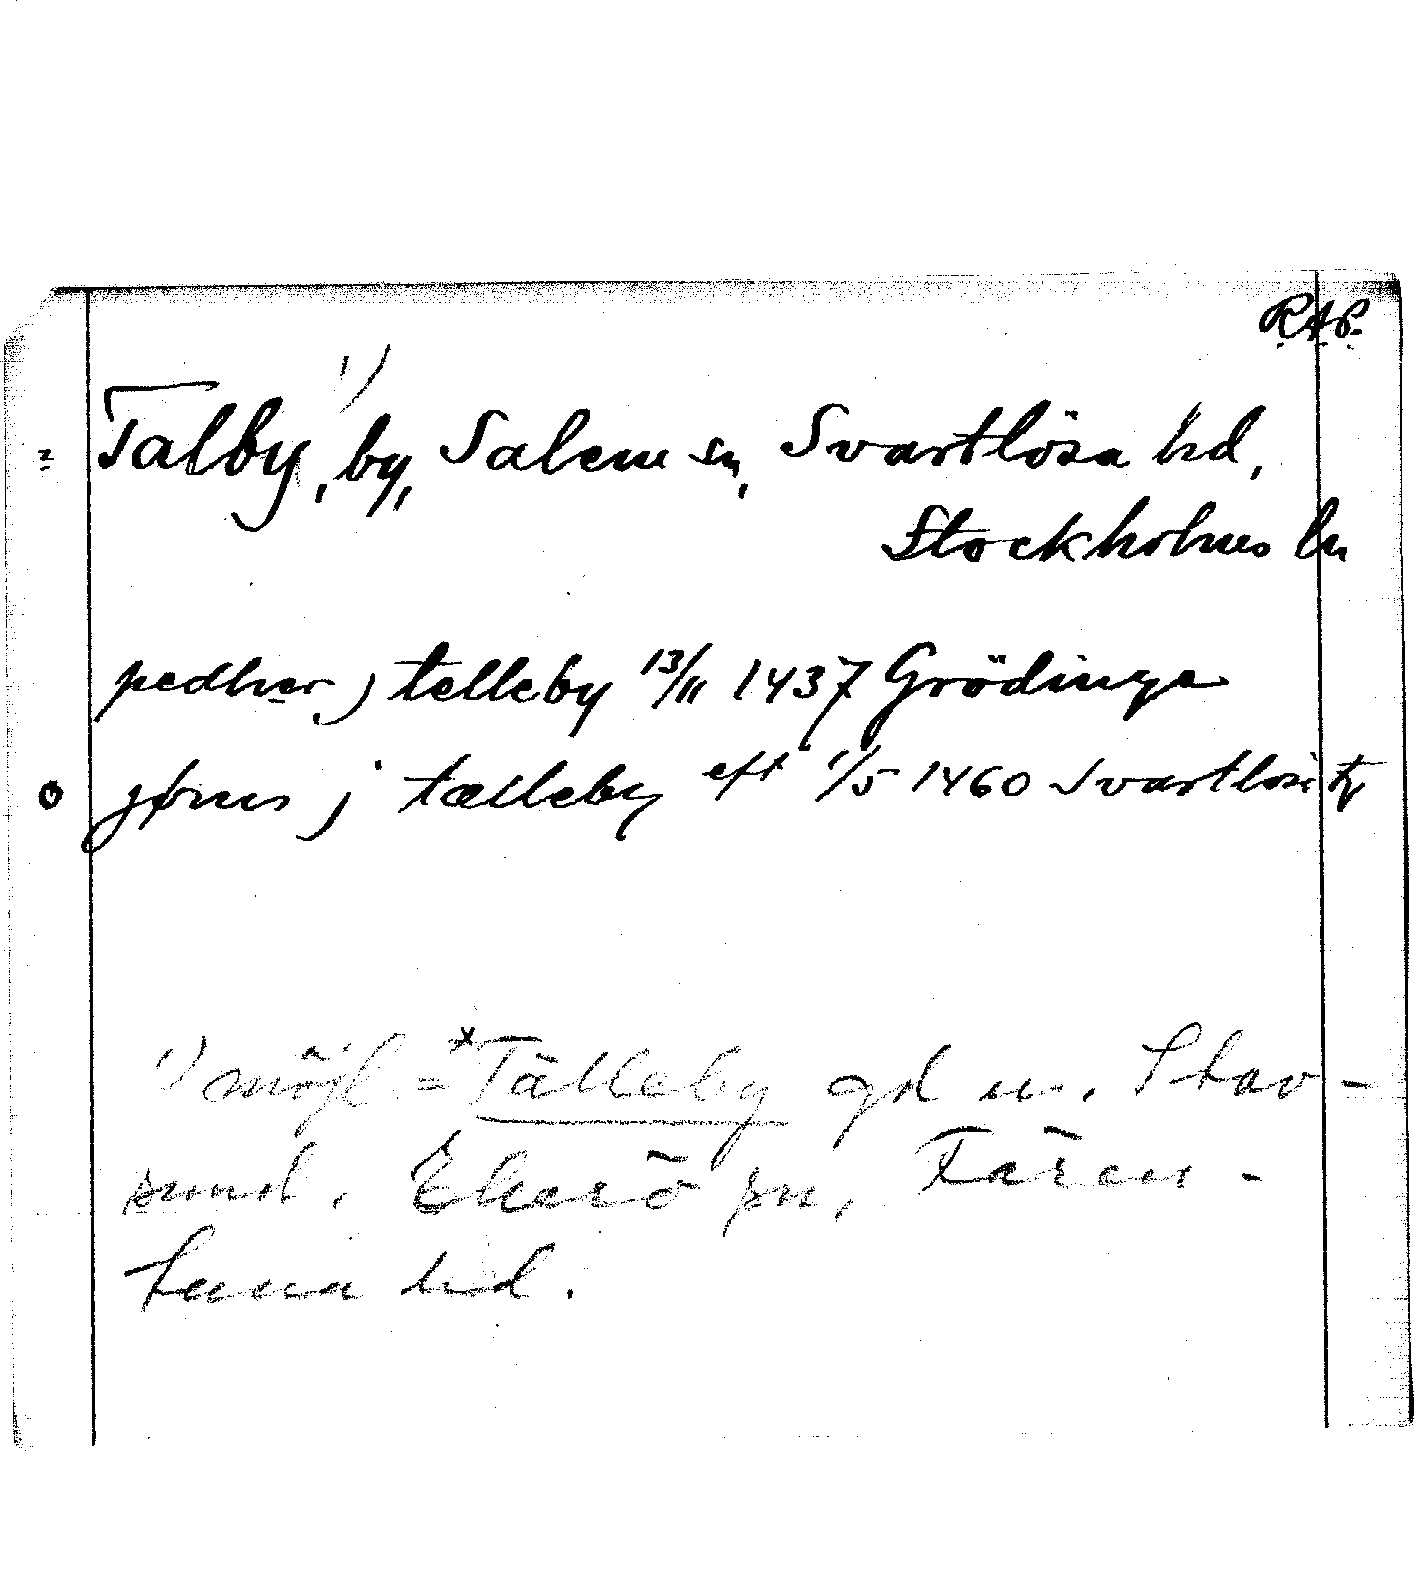 RAP.
1)
= Talby, by, Salem sn, Svartlösa hd,
Stockholms ln
pedher j telleby 13/11 1437 Grödinge
jønes j tælleby eft 1/5 1460 Svartlösa tg
1) möjl = *Tälleby gd u. Stav-
sund, Ekerö sn, Faren-
tuna hd.